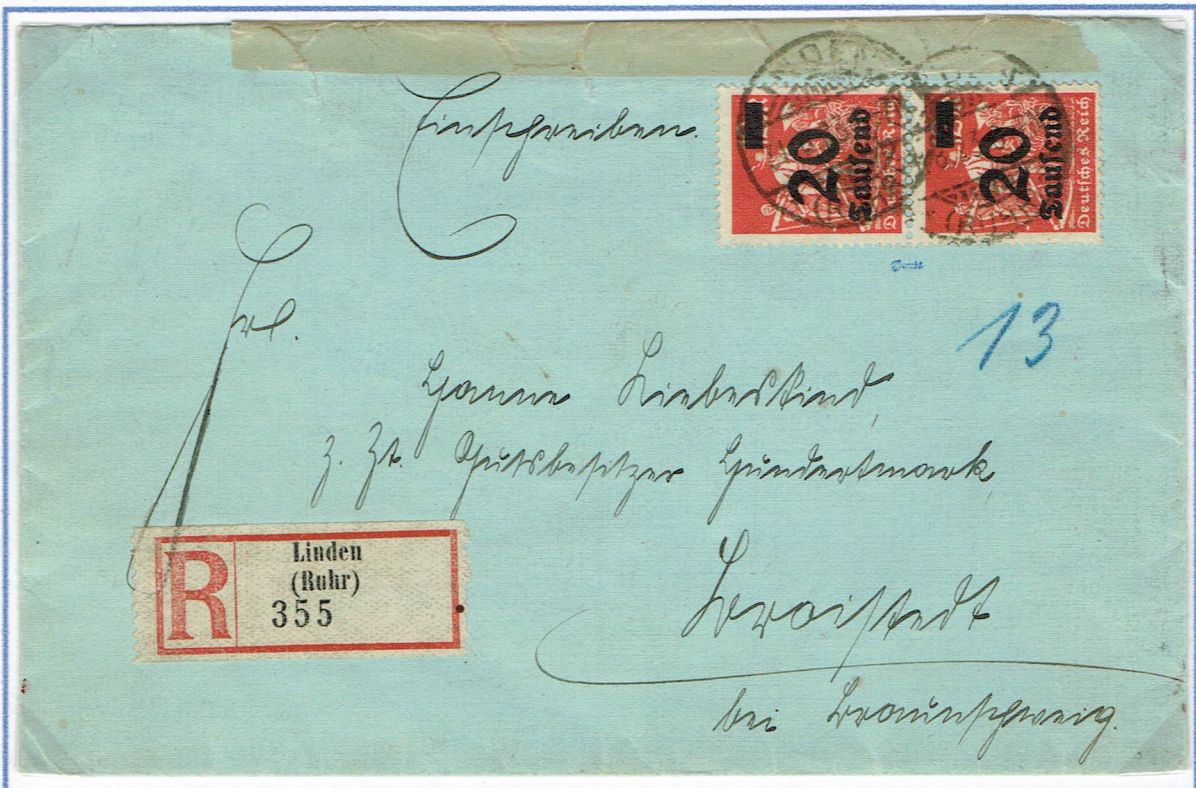 Einschreiben.
LINDEN
20
Tausend
Deutsches Reich
20
Tausend
Deutsches Reich
13
Frl.
Hanne Liebeskind,
z. Zt. Gutsbesitzer Hundertmark,
Broistedt
bei Braunschweig.
R
Linden
(Ruhr)
355